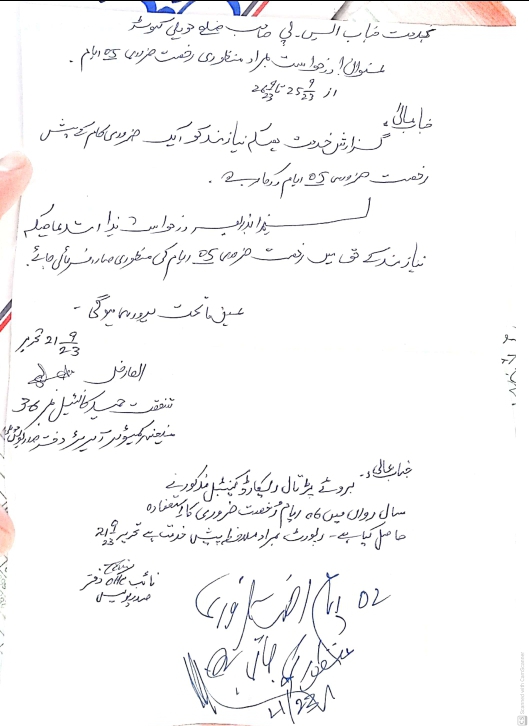 بخدمت جناب ایس۔پی صاحب ضلع حویلی کہوٹہ
عنوان! درخواست بمراد منظوری رخصت ضروری 05 ایام۔
از 25 9/23 تا 26 9/23
جناب عالیٰ!
گزارش خدمت ہیکہ نیازمند کو ایک ضروری کام کے پیش
رخصت ضروری 05 ایام درکار ہے۔
لہذا بذریعہ درخواست ہذا استدعا ہیکہ
نیازمند کے حق میں رخصت ضروری 05 ایام کی منظوری صادر فرمائی جائے۔
عین ماتحت پروری ہو گی۔
تحریر 21 9/23
العارض
شفقت حمید کانسٹیبل نمبر 36
متعینہ کمپیوٹر آپریٹر دفتر صدر پولیس
جناب عالیٰ!۔ بروئے پڑتال ریکارڈ کنسٹیبل مذکور نے
سال رواں میں 06 ایام رخصت ضروری کا استفادہ
حاصل کیا ہے۔ رپورٹ بمراد ملاحظہ پیش خدمت ہے تحریر 21 9/23
نائب OHC دفتر
صدر پولیس
02 ایام
منظور کی جاتی
21/9/23
Scanned with CamScanner